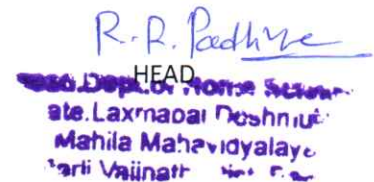 R. R. Padhye
HEAD
Dept. of Home
ate. Laxmabai Deshmu
Mahila Mahavidyalaya
arli Vaijnath